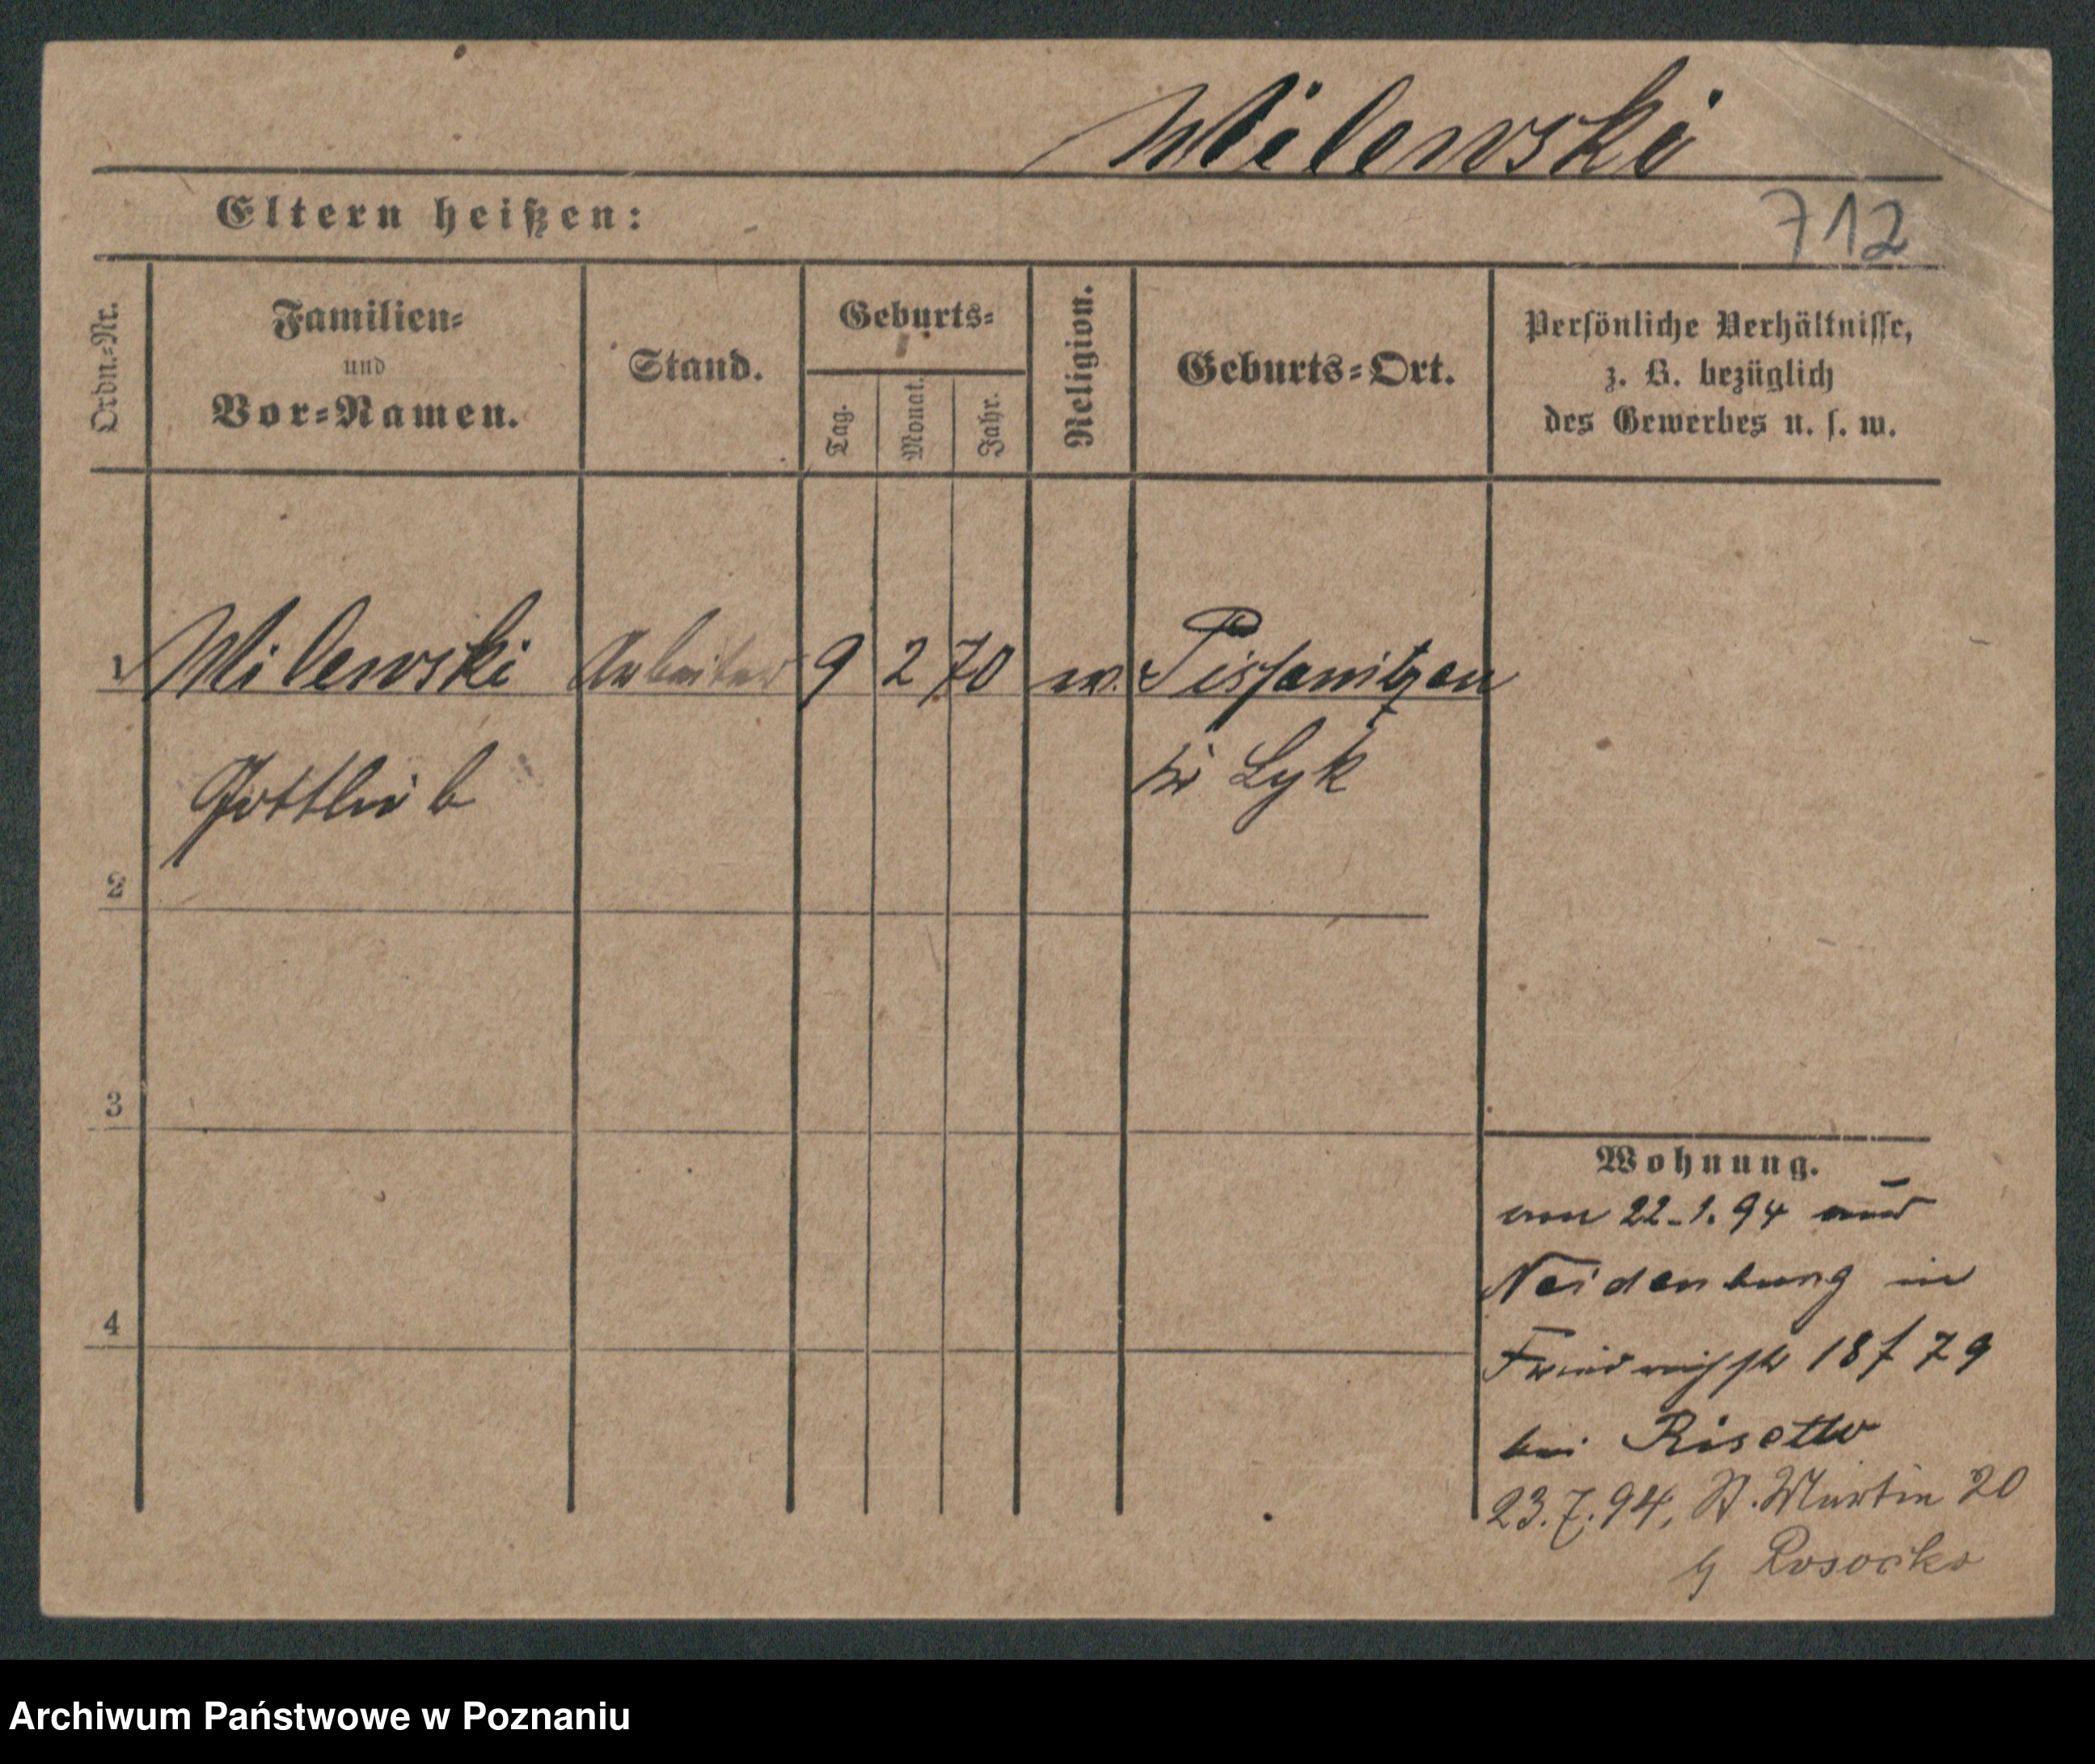 Milewski
Eltern heißen:
712
Ordn.-Nr.
Familien-
und
Vor-Namen.
Stand.
Geburts-
Tag.
Monat.
Jahr.
Religion.
Geburts-Ort.
Persönliche Verhältnisse,
z. B. bezüglich
des Gewerbes u. s. w.
1 Milewski Arbeiter 9 2 70 ev. Pissanitzen
Gottlieb Kr Lyk
2
3
4
Wohnung.
am 22.1.94 aus
Neidenburg in
Friedrichstr 18 f 79
bei Risetto
23.7.94, St. Martin 20
b Rosocka
Archiwum Państwowe w Poznaniu